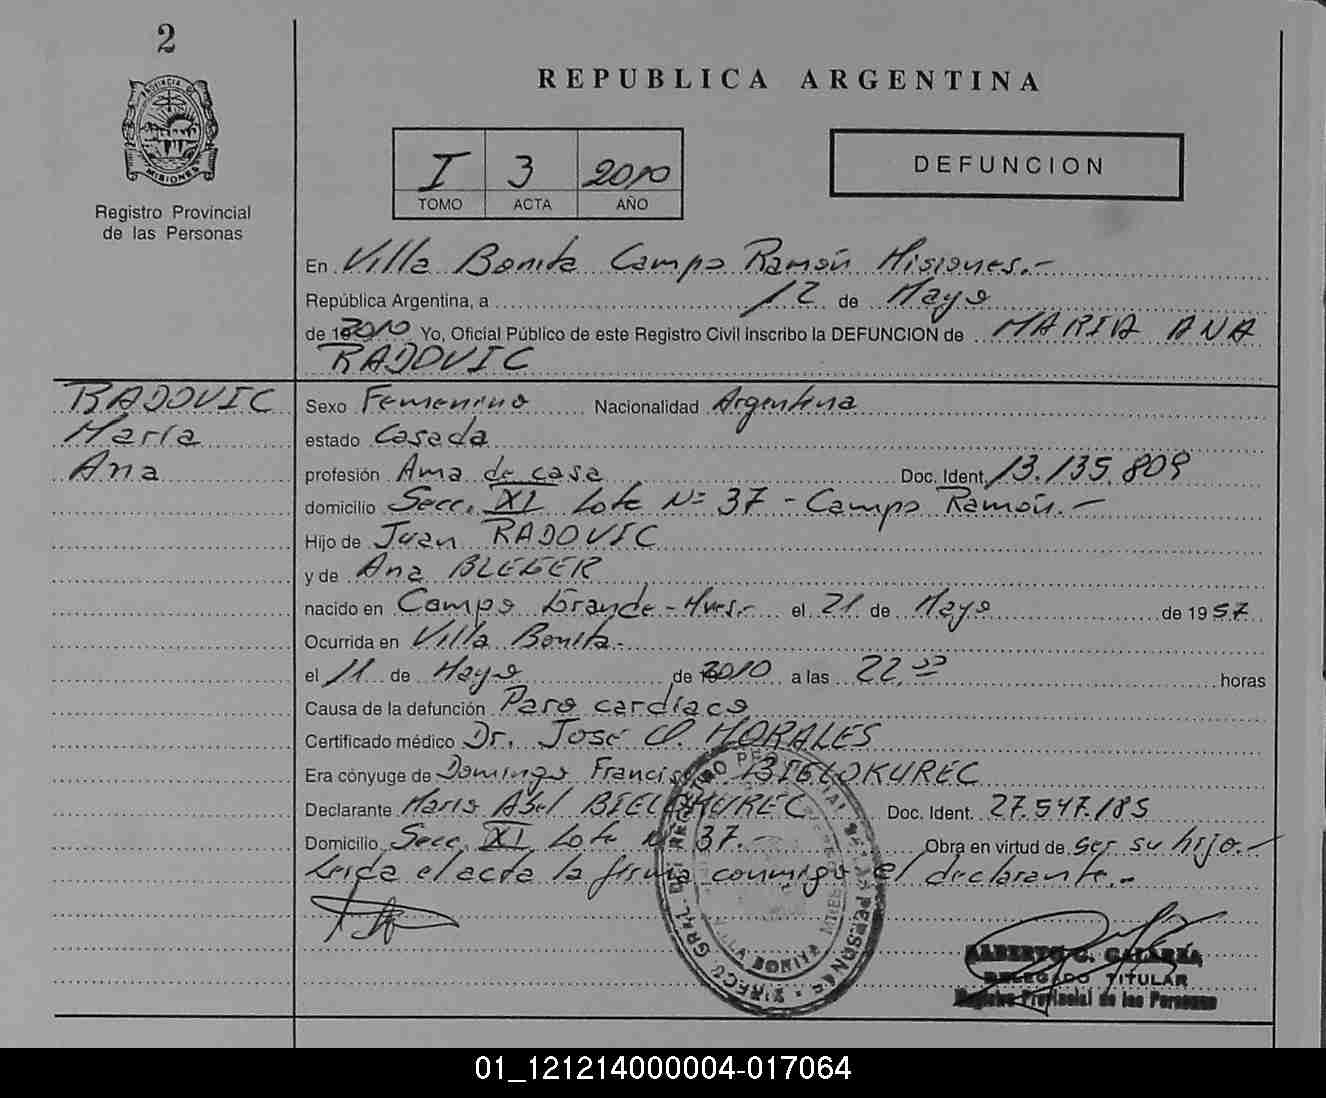 2
PROVINCIA DE
MISIONES
Registro Provincial
de las Personas
REPUBLICA ARGENTINA
I 3 2010
TOMO ACTA AÑO
DEFUNCION
En Villa Bonita Campo Ramón Misiones.-
República Argentina, a 12 de Mayo
de 2010 Yo, Oficial Público de este Registro Civil inscribo la DEFUNCION de MARIA ANA
RADOVIC
RADOVIC
María
Ana
Sexo Femenino Nacionalidad Argentina
estado Casada
profesión Ama de casa Doc. Ident. 13.135.809
domicilio Secc. XI Lote Nº 37 - Campo Ramón.-
Hijo de Juan RADOVIC
y de Ana BLEGER
nacido en Campo Grande - Mnes.- el 21 de Mayo de 1957
Ocurrida en Villa Bonita.-
el 11 de Mayo de 2010 a las 22,00 horas
Causa de la defunción Paro cardiaco
Certificado médico Dr. José O. MORALES
Era cónyuge de Domingo Francisco BIELOKUREC
Declarante Mario Abel BIELOKUREC Doc. Ident. 27.547.185
Domicilio Secc. XI Lote Nº 37.- Obra en virtud de ser su hijo.-
Leida el acta la firma conmigo el declarante.-
DIREC. GRAL. DEL REGISTRO PROVINCIAL DE LAS PERSONAS
VILLA BONITA
ALBERTO G. GALARZA
DELEGADO TITULAR
Registro Provincial de las Personas
01_121214000004-017064